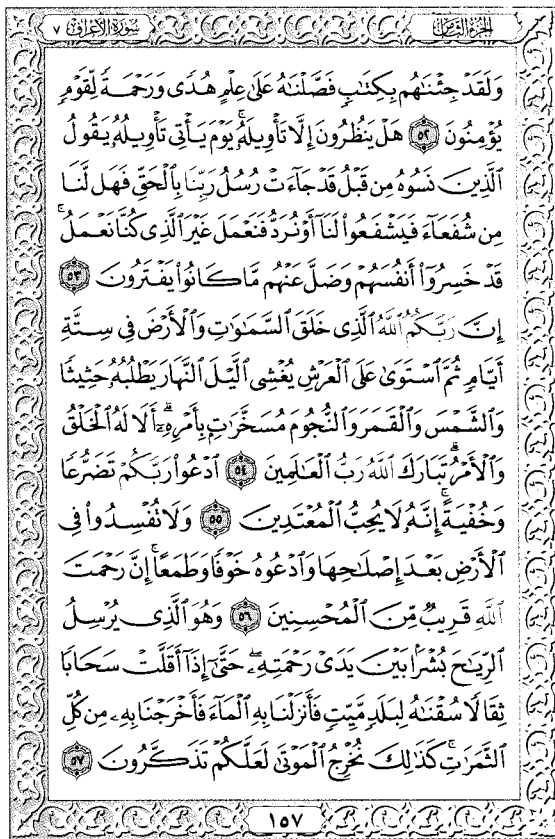 سورة الأعراف ٧
الجزء الثامن
وَلَقَدْ جِئْنَٰهُم بِكِتَٰبٍ فَصَّلْنَٰهُ عَلَىٰ عِلْمٍ هُدًى وَرَحْمَةً لِّقَوْمٍ
يُؤْمِنُونَ ٥٢ هَلْ يَنظُرُونَ إِلَّا تَأْوِيلَهُۥ ۚ يَوْمَ يَأْتِى تَأْوِيلُهُۥ يَقُولُ
ٱلَّذِينَ نَسُوهُ مِن قَبْلُ قَدْ جَآءَتْ رُسُلُ رَبِّنَا بِٱلْحَقِّ فَهَل لَّنَا
مِن شُفَعَآءَ فَيَشْفَعُوا۟ لَنَآ أَوْ نُرَدُّ فَنَعْمَلَ غَيْرَ ٱلَّذِى كُنَّا نَعْمَلُ ۚ
قَدْ خَسِرُوٓا۟ أَنفُسَهُمْ وَضَلَّ عَنْهُم مَّا كَانُوا۟ يَفْتَرُونَ ٥٣
إِنَّ رَبَّكُمُ ٱللَّهُ ٱلَّذِى خَلَقَ ٱلسَّمَٰوَٰتِ وَٱلْأَرْضَ فِى سِتَّةِ
أَيَّامٍ ثُمَّ ٱسْتَوَىٰ عَلَى ٱلْعَرْشِ يُغْشِى ٱلَّيْلَ ٱلنَّهَارَ يَطْلُبُهُۥ حَثِيثًا
وَٱلشَّمْسَ وَٱلْقَمَرَ وَٱلنُّجُومَ مُسَخَّرَٰتٍۭ بِأَمْرِهِۦٓ ۗ أَلَا لَهُ ٱلْخَلْقُ
وَٱلْأَمْرُ ۗ تَبَارَكَ ٱللَّهُ رَبُّ ٱلْعَٰلَمِينَ ٥٤ ٱدْعُوا۟ رَبَّكُمْ تَضَرُّعًا
وَخُفْيَةً ۚ إِنَّهُۥ لَا يُحِبُّ ٱلْمُعْتَدِينَ ٥٥ وَلَا تُفْسِدُوا۟ فِى
ٱلْأَرْضِ بَعْدَ إِصْلَٰحِهَا وَٱدْعُوهُ خَوْفًا وَطَمَعًا ۚ إِنَّ رَحْمَتَ
ٱللَّهِ قَرِيبٌ مِّنَ ٱلْمُحْسِنِينَ ٥٦ وَهُوَ ٱلَّذِى يُرْسِلُ
ٱلرِّيَٰحَ بُشْرًۢا بَيْنَ يَدَىْ رَحْمَتِهِۦ ۖ حَتَّىٰٓ إِذَآ أَقَلَّتْ سَحَابًا
ثِقَالًا سُقْنَٰهُ لِبَلَدٍ مَّيِّتٍ فَأَنزَلْنَا بِهِ ٱلْمَآءَ فَأَخْرَجْنَا بِهِۦ مِن كُلِّ
ٱلثَّمَرَٰتِ ۚ كَذَٰلِكَ نُخْرِجُ ٱلْمَوْتَىٰ لَعَلَّكُمْ تَذَكَّرُونَ ٥٧
١٥٧